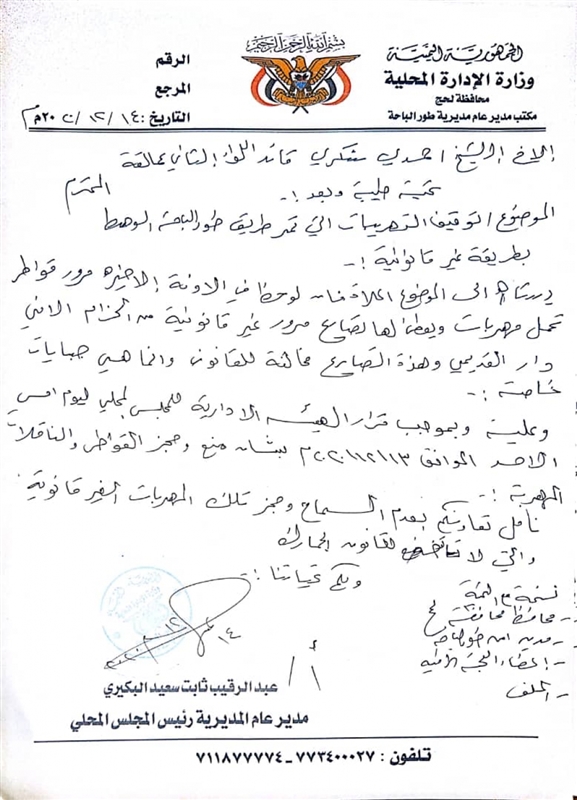 بسم الله الرحمن الرحيم
الجمهورية اليمنية
وزارة الإدارة المحلية
محافظة لحج
مكتب مدير عام مديرية طور الباحة
الرقم
المرجع
التاريخ: ١٤ / ١٢ / ٢٠٢٠م
الاخ الشيخ احمدي شكري قائد اللواء الثاني عمالقة
المحترم
تحية طيبة وبعد :-
الموضوع التوقيف التهريبات التي تمر طريق طور الباحة الوهط
بطريقة غير قانونية :-
الى الموضوع اعلاه فان لوحظ في الاونة الاخيره مرور قواطر
تحمل مهربات ويعطى لها تصاريح مرور غير قانونية من الحزام الامني
دار القديمي وهذة التصاريح مخالفة للقانون وانما هي جبايات
خاصة :-
وعلية وبموجب قرار الهيئه الادارية للمجلس المحلي ليوم امس
الاحد الموافق ٢٠٢٠/١٢/١٣م بشان منع وحجز القواطر والناقلات
المهربة :-
نامل تعاونكم بعدم السماح وحجز تلك المهربات الغير قانونية
والتي لا تخضع لقانون الجمارك
ولكم تحياتنا :-
نسخة مع التحية
- محافظ محافظة لحج
- مدير امن طور الباحة
- اعضاء اللجنة الامنية
- الملف
١٤
١٢
أ / عبدالرقيب ثابت سعيد البكيري
مدير عام المديرية رئيس المجلس المحلي
تلفون : ٧٧٣٤٠٠٠٢٧ - ٧١١٨٧٧٧٧٤